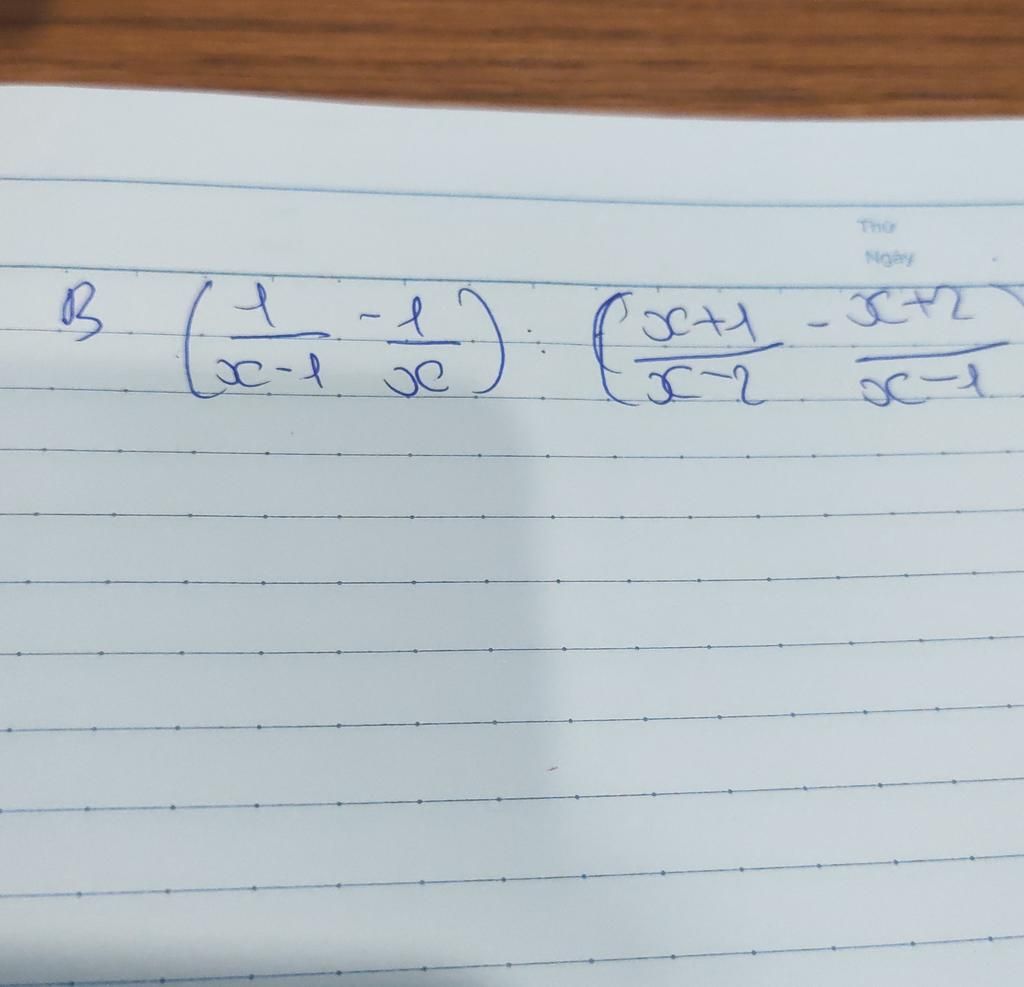 Thứ
Ngày
B (1/x-1 - 1/x) : (x+1/x-2 - x+2/x-1)